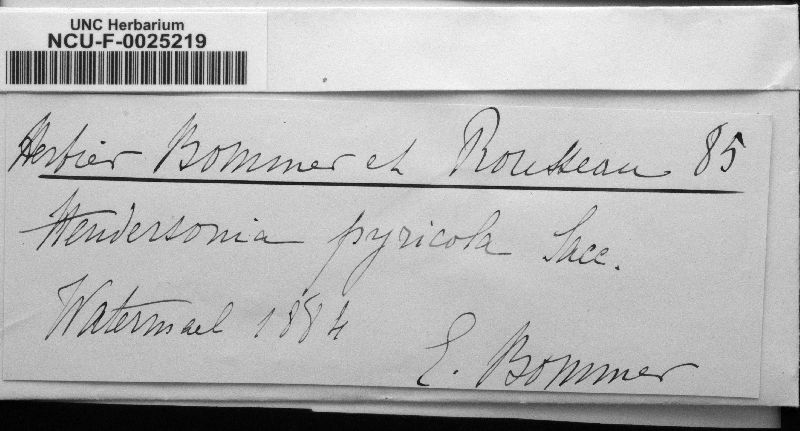 UNC Herbarium
NCU-F-0025219
Herbier Bommer et Rousseau 85
Hendersonia pyricola Sacc.
Watermael 1884
E. Bommer